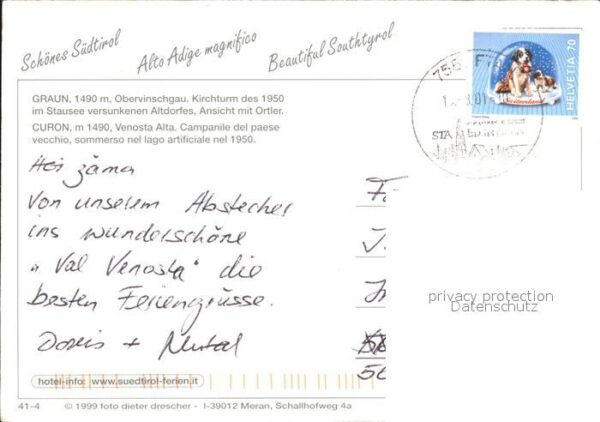 Schönes Südtirol
Alto Adige magnifico
Beautiful Southtyrol
GRAUN, 1490 m, Obervinschgau. Kirchturm des 1950
im Stausee versunkenen Altdorfes, Ansicht mit Ortler.
CURON, m 1490, Venosta Alta. Campanile del paese
vecchio, sommerso nel lago artificiale nel 1950.
HELVETIA 70
Hoi zäma
Von unserem Abstecher
ins wunderschöne
"Val Venosta" die
besten Feriengrüsse.
Doris +
privacy protection
Datenschutz
hotel-info: www.suedtirol-ferien.it
41-4 © 1999 foto dieter drescher - I-39012 Meran, Schallhofweg 4a